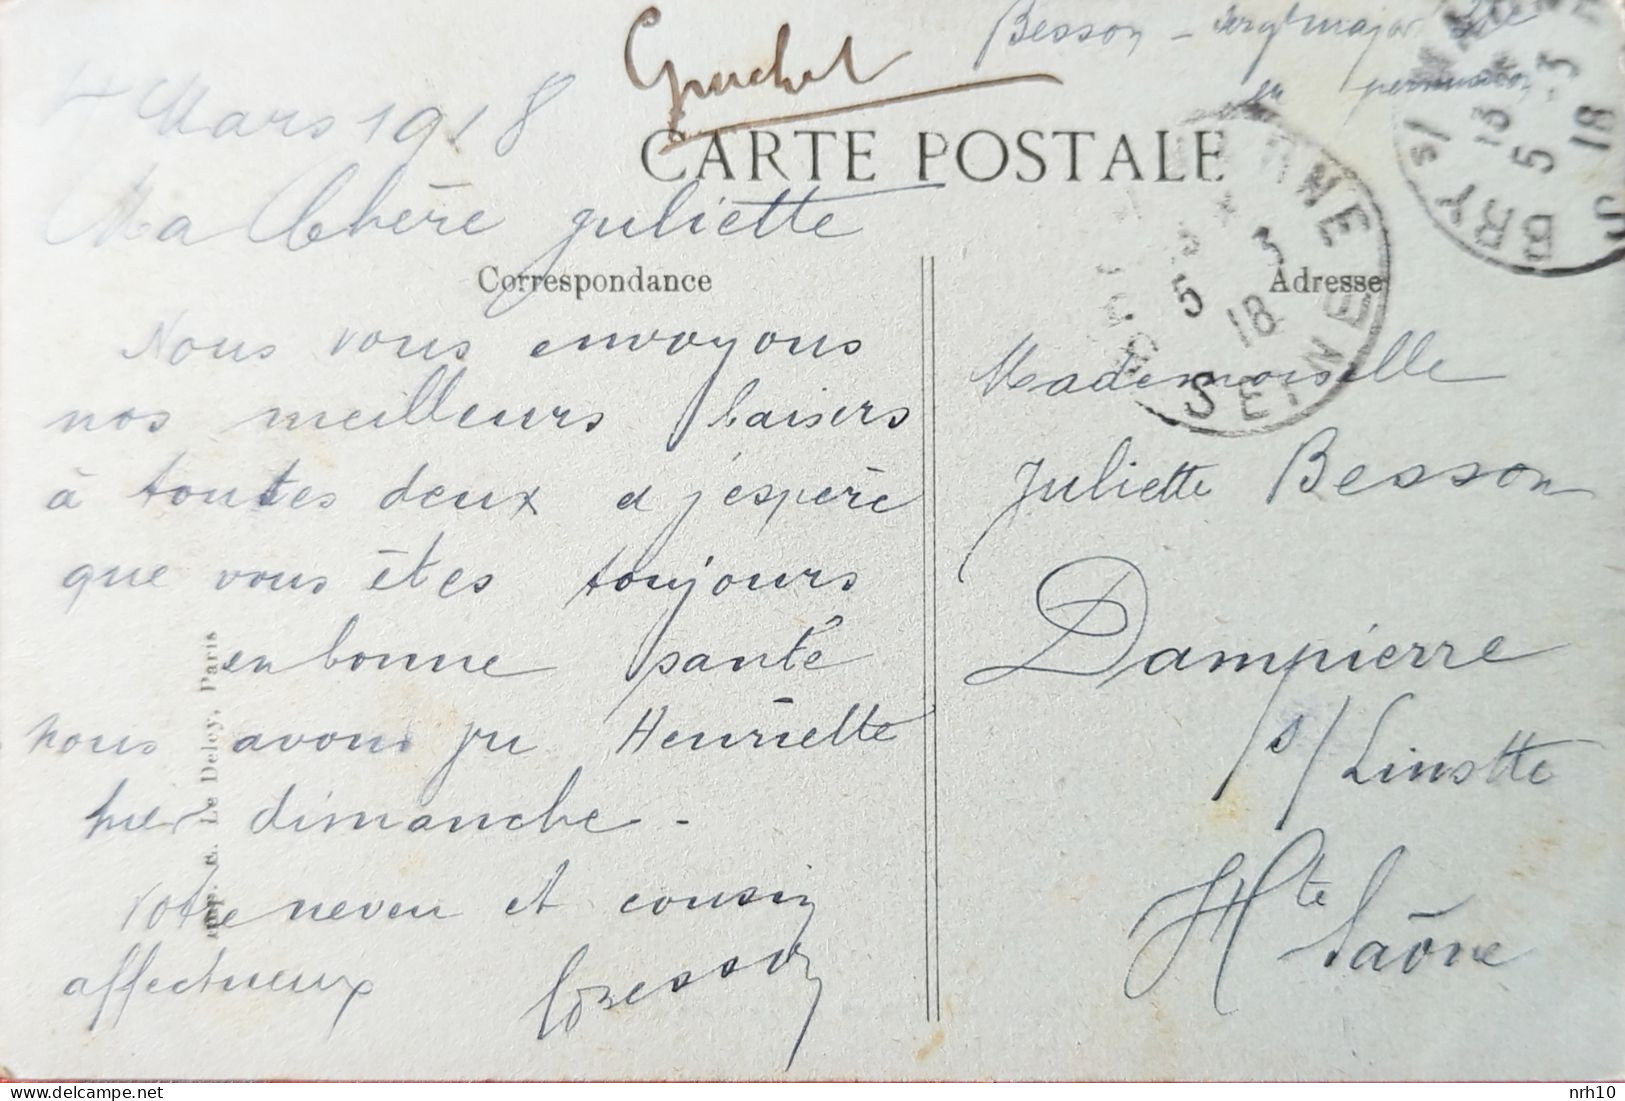 Besson - sergt major
en permission
Guichet
4 Mars 1918
CARTE POSTALE
Ma Chère Juliette
Correspondance
Adresse
Nous vous envoyons
nos meilleurs baisers
à toutes deux et j'éspère
que vous êtes toujours
en bonne santé
nous avons pu Henriette
hier dimanche -
Votre neveu et cousin
affectueux Besson
Mademoiselle
Juliette Besson
Dampierre
s/ Linotte
Hte Saône
Imp. E. Le Deley, Paris
MARNE
13 X
5 3
18
SEINE
BRY S/ MARNE
13
5 -3
18
nrh10